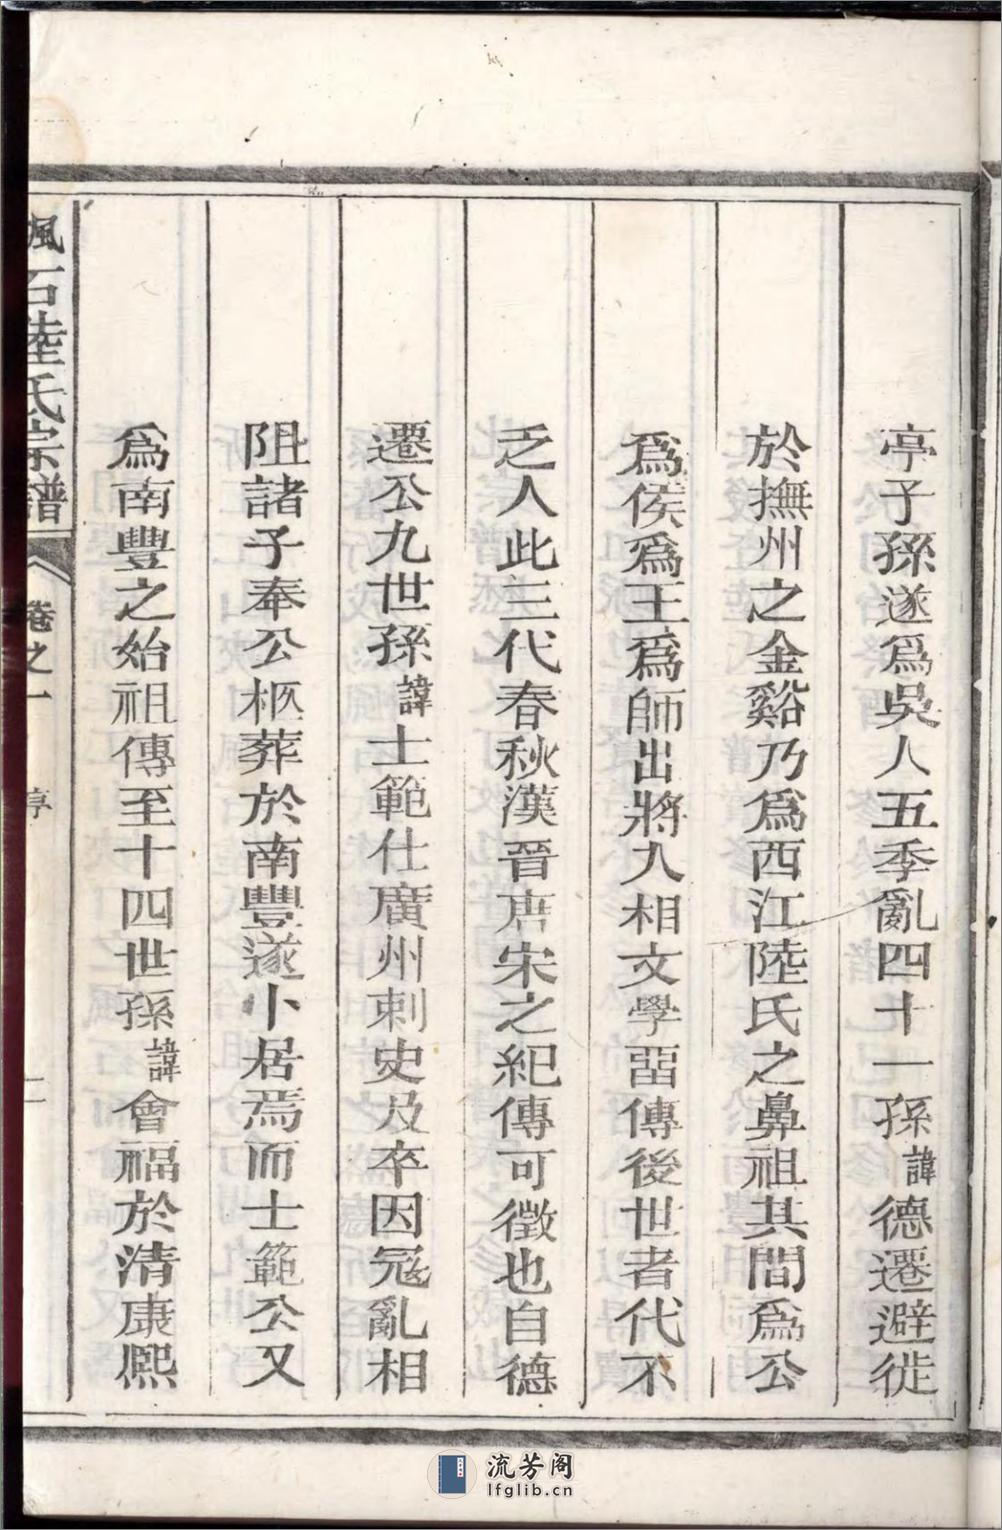 亭子孫遂爲吳人五季亂四十一孫諱德遷避徙
於撫州之金谿乃爲西江陸氏之鼻祖其間爲公
爲侯爲王爲師出將入相文學畱傳後世者代不
乏人此三代春秋漢晉唐宋之紀傳可徵也自德
遷公九世孫諱士範仕廣州刺史及卒因冦亂相
阻諸子奉公柩葬於南豐遂卜居焉而士範公又
爲南豐之始祖傳至十四世孫諱會福於清康熙
楓石陸氏宗譜 卷之一 序 二
流芳阁
lfglib.cn